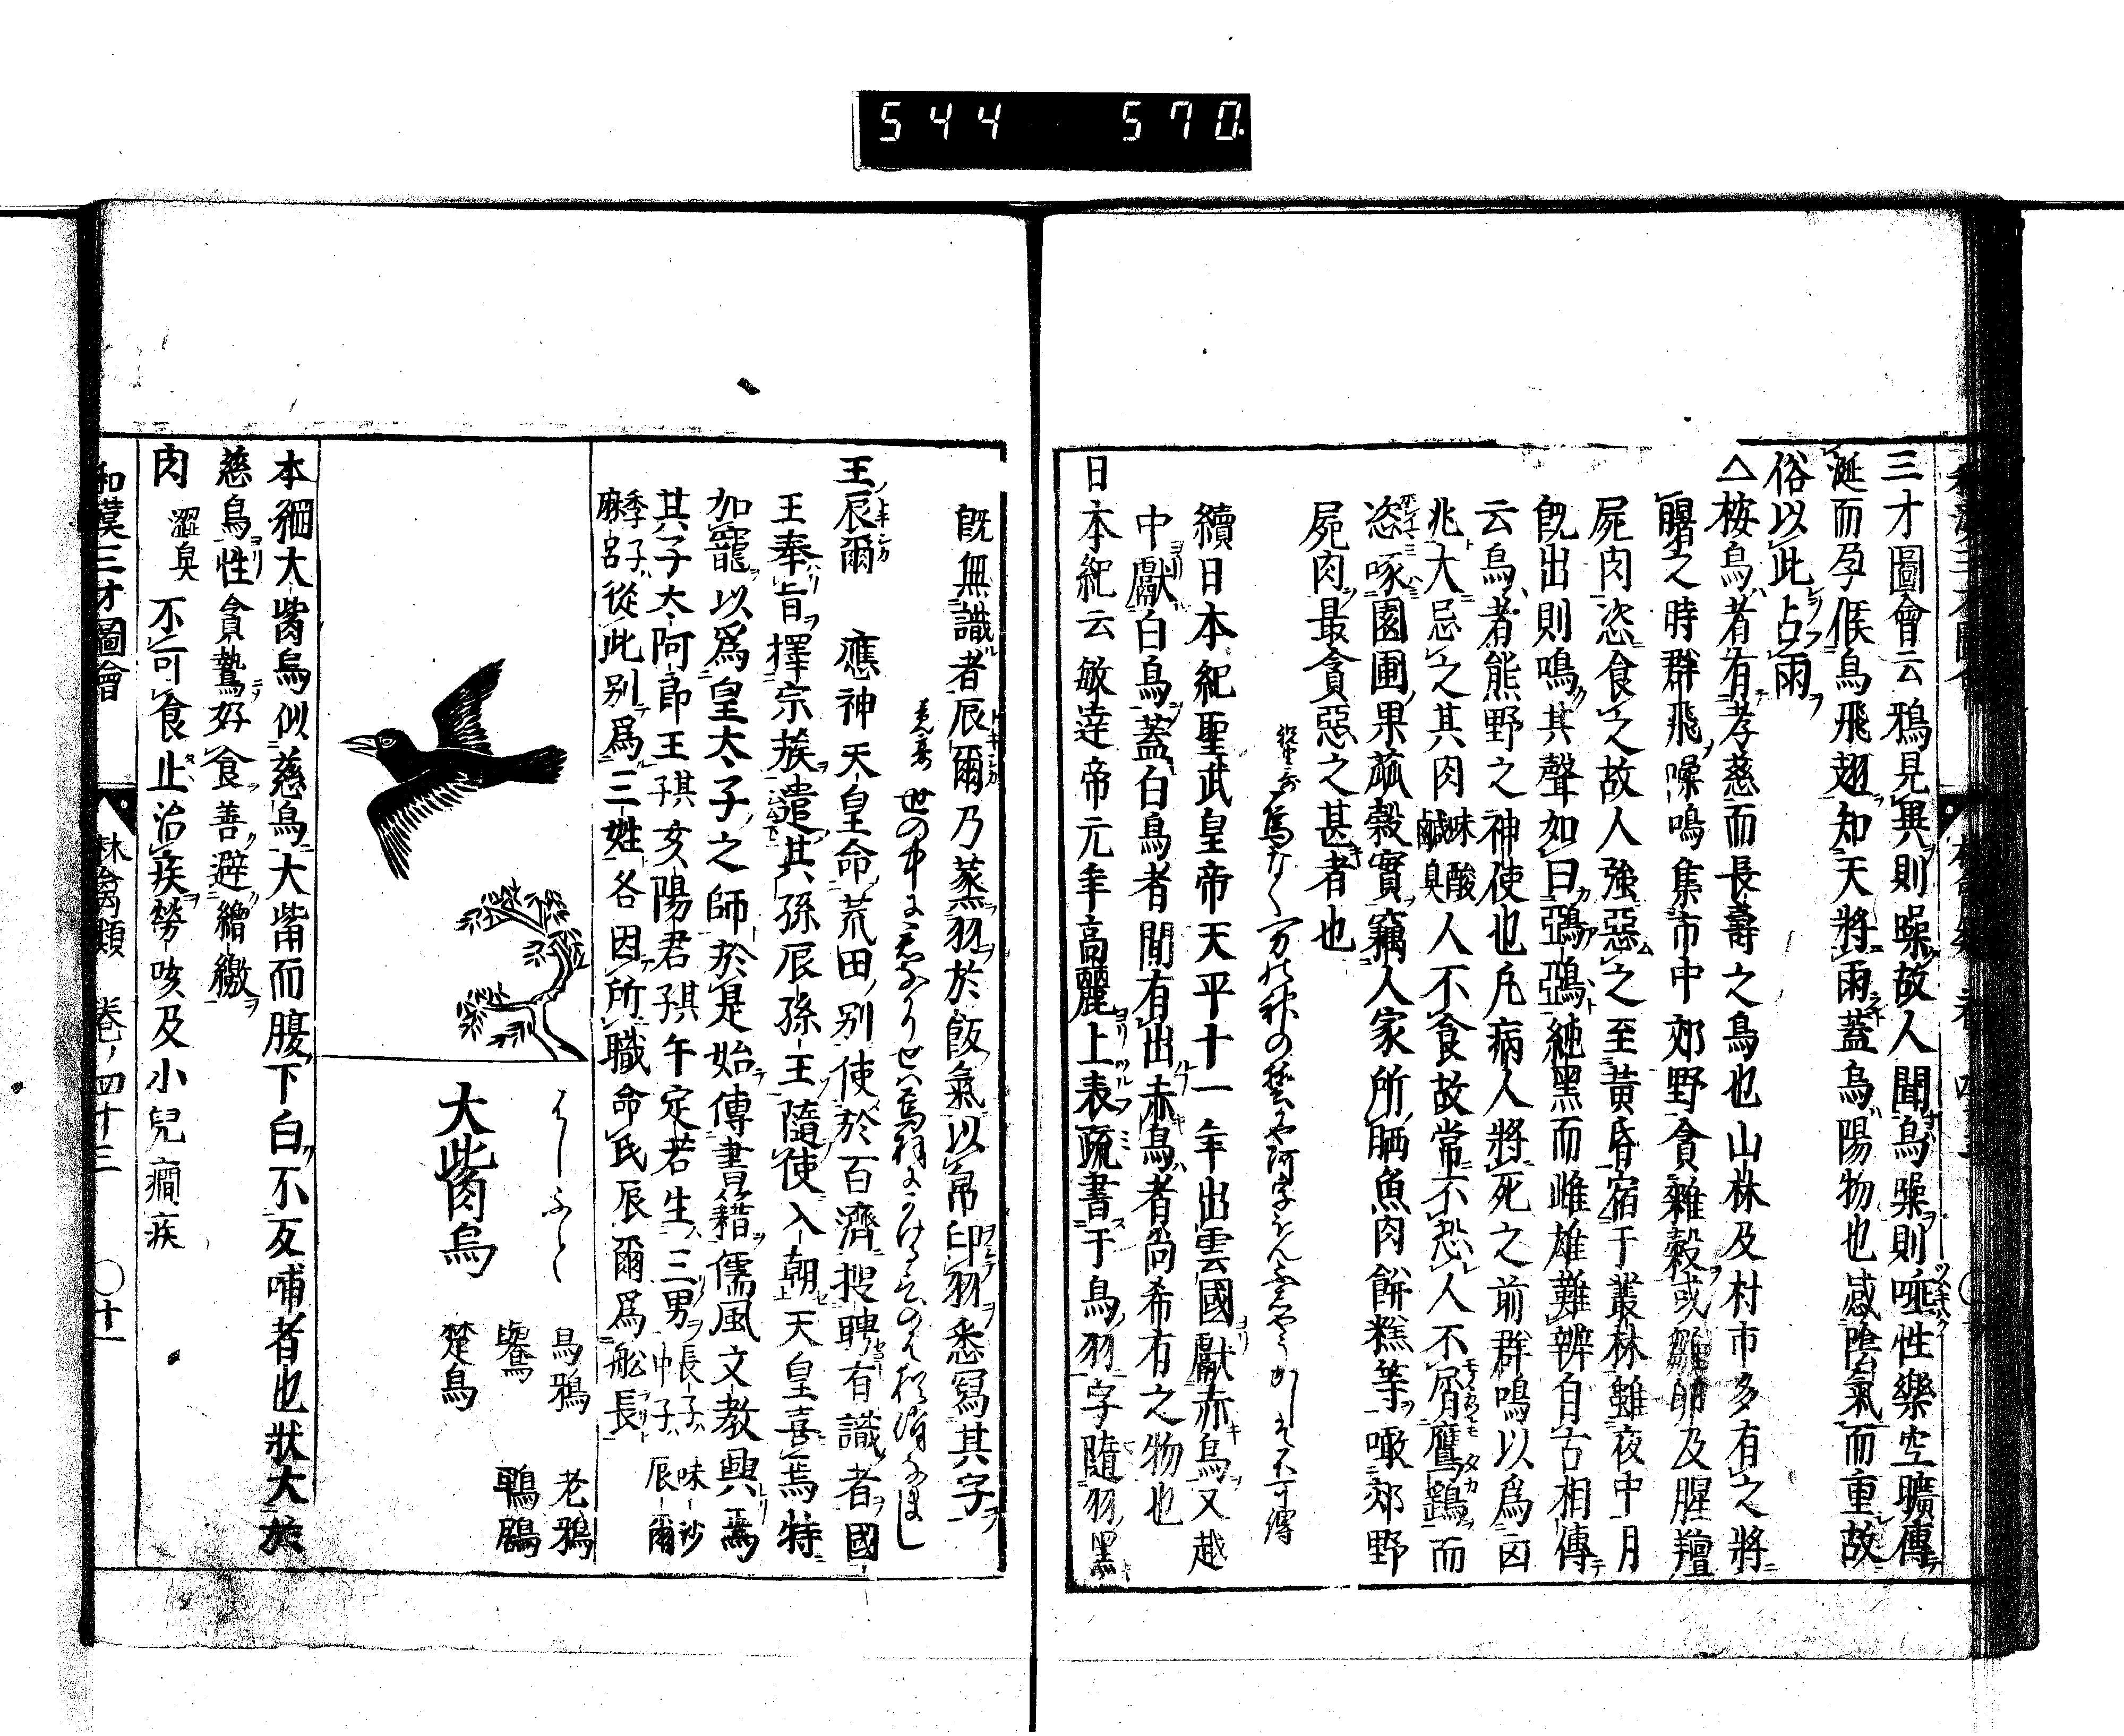 544 570
三才圖會云鴉見異則噪故人聞烏噪則唾性樂空曠傳
涎而孕候烏飛翅知天將雨蓋烏陽物也感陰氣而重故
俗以此占雨
△按烏者有孝慈而長壽之鳥也山林及村市多有之將
曙之時群飛噪鳴集市中郊野貪雜穀或雞卵及腥羶
屍肉恣食之故人強惡之至黃昏宿于叢林雖夜中月
既出則鳴其聲如曰鵶鵶純黑而雌雄難辨自古相傳
云烏者熊野之神使也凡病人將死之前群鳴以爲凶
兆大忌之其肉味酸鹹臭人不食故常不恐人不屑鷹鷂而
恣啄園圃果蓏穀實竊人家所晒魚肉餅糕等噉郊野
屍肉最貪惡之甚者也
續日本紀聖武皇帝天平十一年出雲國獻赤烏又越
中獻白烏蓋白烏者間有出赤烏者尚希有之物也
日本紀云敏達帝元年高麗上表疏書于烏羽字隨羽黑
既無識者辰爾乃蒸羽於飯氣以帛印羽悉寫其字
王辰爾 應神天皇命荒田別使於百濟搜聘有識者國
王奉旨擇宗族遣其孫辰孫王隨使入朝天皇喜焉特
加寵以爲皇太子之師於是始傳書籍儒風文教興焉
其子太阿郎王子其亥陽君子其午定若生三男長子味沙中子辰爾
季子麻呂從此別爲三姓各因所職命氏辰爾爲船長
はしふと
大觜烏
烏鴉 老鴉
鸒 鵯鶋
楚烏
本綱大觜烏似慈烏大觜而腹下白不反哺者也狀大於
慈烏性貪鷙好食善避繒繳
肉 澀臭 不可食止治疾勞咳及小兒癇疾
和漢三才圖會 林禽類 卷ノ四十三 〇十一